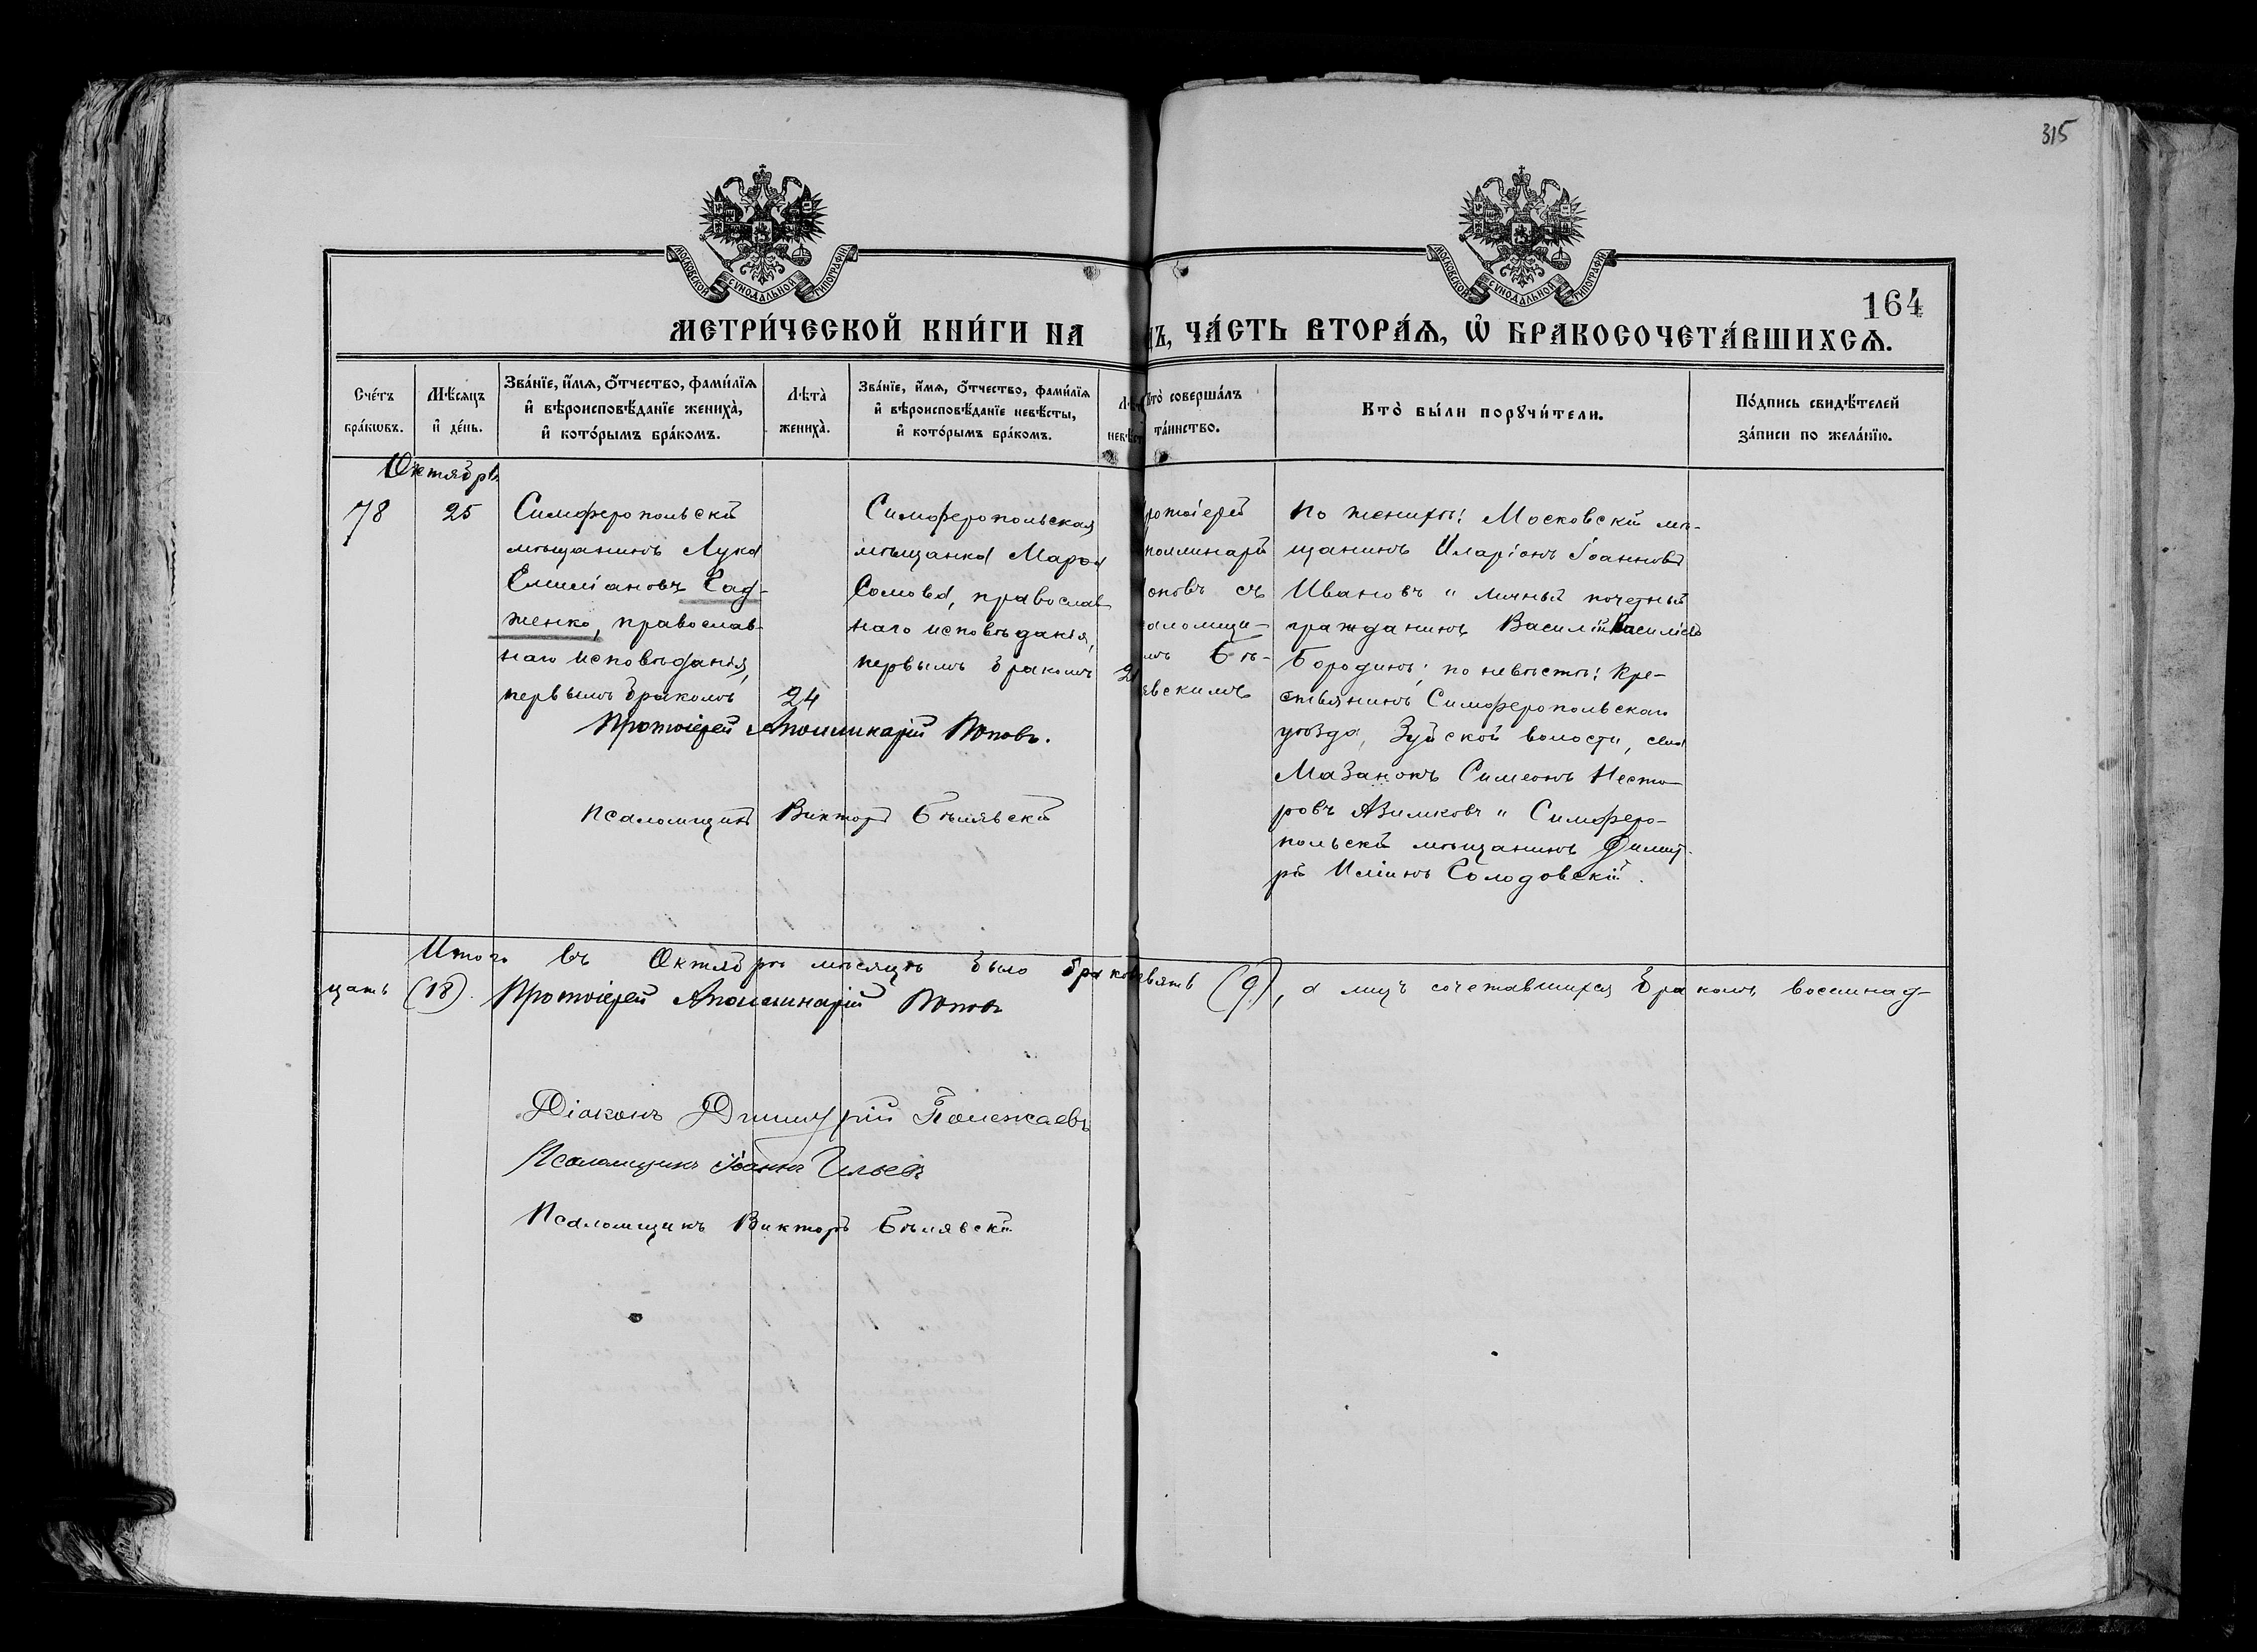 315
МОСКОВСКОЙ СУНОДАЛЬНОЙ ТИПОГРАФІИ
МОСКОВСКОЙ СУНОДАЛЬНОЙ ТИПОГРАФІИ
164
МЕТРИ́ЧЕСКОЙ КНИ́ГИ НА
ДЪ, ЧА́СТЬ ВТОРА́Ѧ, Ѡ БРАКОСОЧЕТА́ВШИХСѦ.
Сче́тъ бра́кѡвъ.
Мѣ́сяцъ и де́нь.
Зва́нїе, и́мѧ, ѻ́тчество, фами́лїѧ и вѣроисповѣ́данїе жениха̀, и кото́рымъ бра́комъ.
Лѣта̀ жениха̀.
Зва́нїе, и́мѧ, ѻ́тчество, фами́лїѧ и вѣроисповѣ́данїе невѣ́сты, и кото́рымъ бра́комъ.
Лѣт невѣст
Кто̀ соверша́лъ та́инство.
Кто̀ бы́ли порꙋчи́тели.
По́дпись свидѣ́телей за́писи по жела́нїю.
Октябрь
78
25
Симферопольскій
мѣщанинъ Лука
Емиліановъ Сад-
женко, православ-
наго исповѣданія,
первымъ бракомъ
24
Симферопольская
мѣщанка Марѳа
Сомова, православ
наго исповѣданія,
первымъ бракомъ
21
ротоіерей
поллинарій
оповъ съ
аломщи-
мъ Бѣ-
явскимъ
По женихѣ: Московскій мѣ-
щанинъ Иларіонъ Іоанновъ
Ивановъ и личный почетный
гражданинъ Василій Василіевъ
Бородинъ; по невѣстѣ: кре-
стьянинъ Симферопольскаго
уѣзда, Зуйской волости, села
Мазанокъ Симеонъ Несто-
ровъ Азимковъ и Симферо-
польскій мѣщанинъ Димит-
рій Иліинъ Солодовскій.
Протоіерей Аполлинарій Поповъ.
Псаломщикъ Викторъ Бѣлявскій
Итого въ Октябрѣ мѣсяцѣ было браковъ
евять (9), а лицъ сочетавшихся бракомъ восемнад-
цать (18). Протоіерей Аполлинарій Поповъ
Діаконъ Димитрій Полежаевъ
Псаломщикъ Іоаннъ Ильевъ
Псаломщикъ Викторъ Бѣлявскій